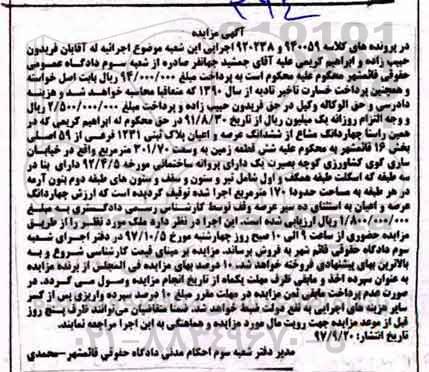 آگهی مزایده
در پرونده های کلاسه ۹۳۰۰۵۹ و ۹۲۰۲۳۸ اجرایی این شعبه موضوع اجرائیه له آقایان فریدون
حبیب زاده و ابراهیم کریمی علیه آقای جمشید جهانفر صادره از شعبه سوم دادگاه عمومی
حقوقی قائمشهر محکوم علیه محکوم است به پرداخت مبلغ ۹۴/۰۰۰/۰۰۰ ریال بابت اصل خواسته
و همچنین پرداخت خسارت تاخیر تادیه از سال ۱۳۹۰ که متعاقبا محاسبه خواهد شد و هزینه
دادرسی و حق الوکاله وکیل در حق فریدون حبیب زاده و پرداخت مبلغ ۲/۵۰۰/۰۰۰/۰۰۰ ریال
و وجه التزام روزانه یک میلیون ریال از تاریخ ۹۱/۸/۳۰ در حق محکوم له ابراهیم کریمی که در
همین راستا چهاردانگ مشاع از ششدانگ عرصه و اعیان پلاک ثبتی ۱۲۳۱ فرعی از ۵۹ اصلی
بخش ۱۶ قائمشهر به محکوم علیه شش قطعه زمین به وسعت ۳۰۱/۷۰ مترمربع واقع در خیابان
ساری کوی کشاورزی کوچه بصیرت یک دارای پروانه ساختمانی مورخه ۹۲/۴/۵ دارای بنا در
سه طبقه که اسکلت طبقه همکف و اول شامل تیر و ستون و سقف و ستون های طبقه دوم بتون آرمه
در هر طبقه به مساحت حدودا ۱۷۰ مترمربع اجرا شده توقیف گردیده است که ارزش چهاردانگ
عرصه و اعیان به استثنای ده سیر عرصه وقف توسط کارشناس رسمی دادگستری به مبلغ
۱/۸۰۰/۰۰۰/۰۰۰ ریال ارزیابی شده است. این اجرا در نظر دارد ملک مورد نظر را از طریق
مزایده حضوری از ساعت ۹ الی ۱۰ صبح روز چهارشنبه مورخ ۹۷/۱۰/۵ در دفتر اجرای شعبه
سوم دادگاه حقوقی قائم شهر به فروش برساند. مزایده بر مبنای قیمت کارشناسی شروع و به
بالاترین بهای پیشنهادی فروخته خواهد شد. ۱۰ درصد بهای مزایده فی المجلس از برنده مزایده
به عنوان سپرده اخذ و مابقی ظرف مهلت یکماه از تاریخ انجام مزایده وصول می گردد. در
صورت عدم پرداخت مابقی ثمن مزایده در مهلت مقرر مبلغ ۱۰ درصد سپرده واریزی پس از کسر
سایر هزینه های اجرایی به نفع دولت ضبط خواهد شد. ضمنا متقاضیان می‌توانند ظرف پنج روز
قبل از موعد مزایده جهت رویت مال مورد مزایده و هماهنگی به این اجرا مراجعه نمایند.
تاریخ انتشار: ۹۷/۹/۲۰
مدیر دفتر شعبه سوم احکام مدنی دادگاه حقوقی قائمشهر-محمدی